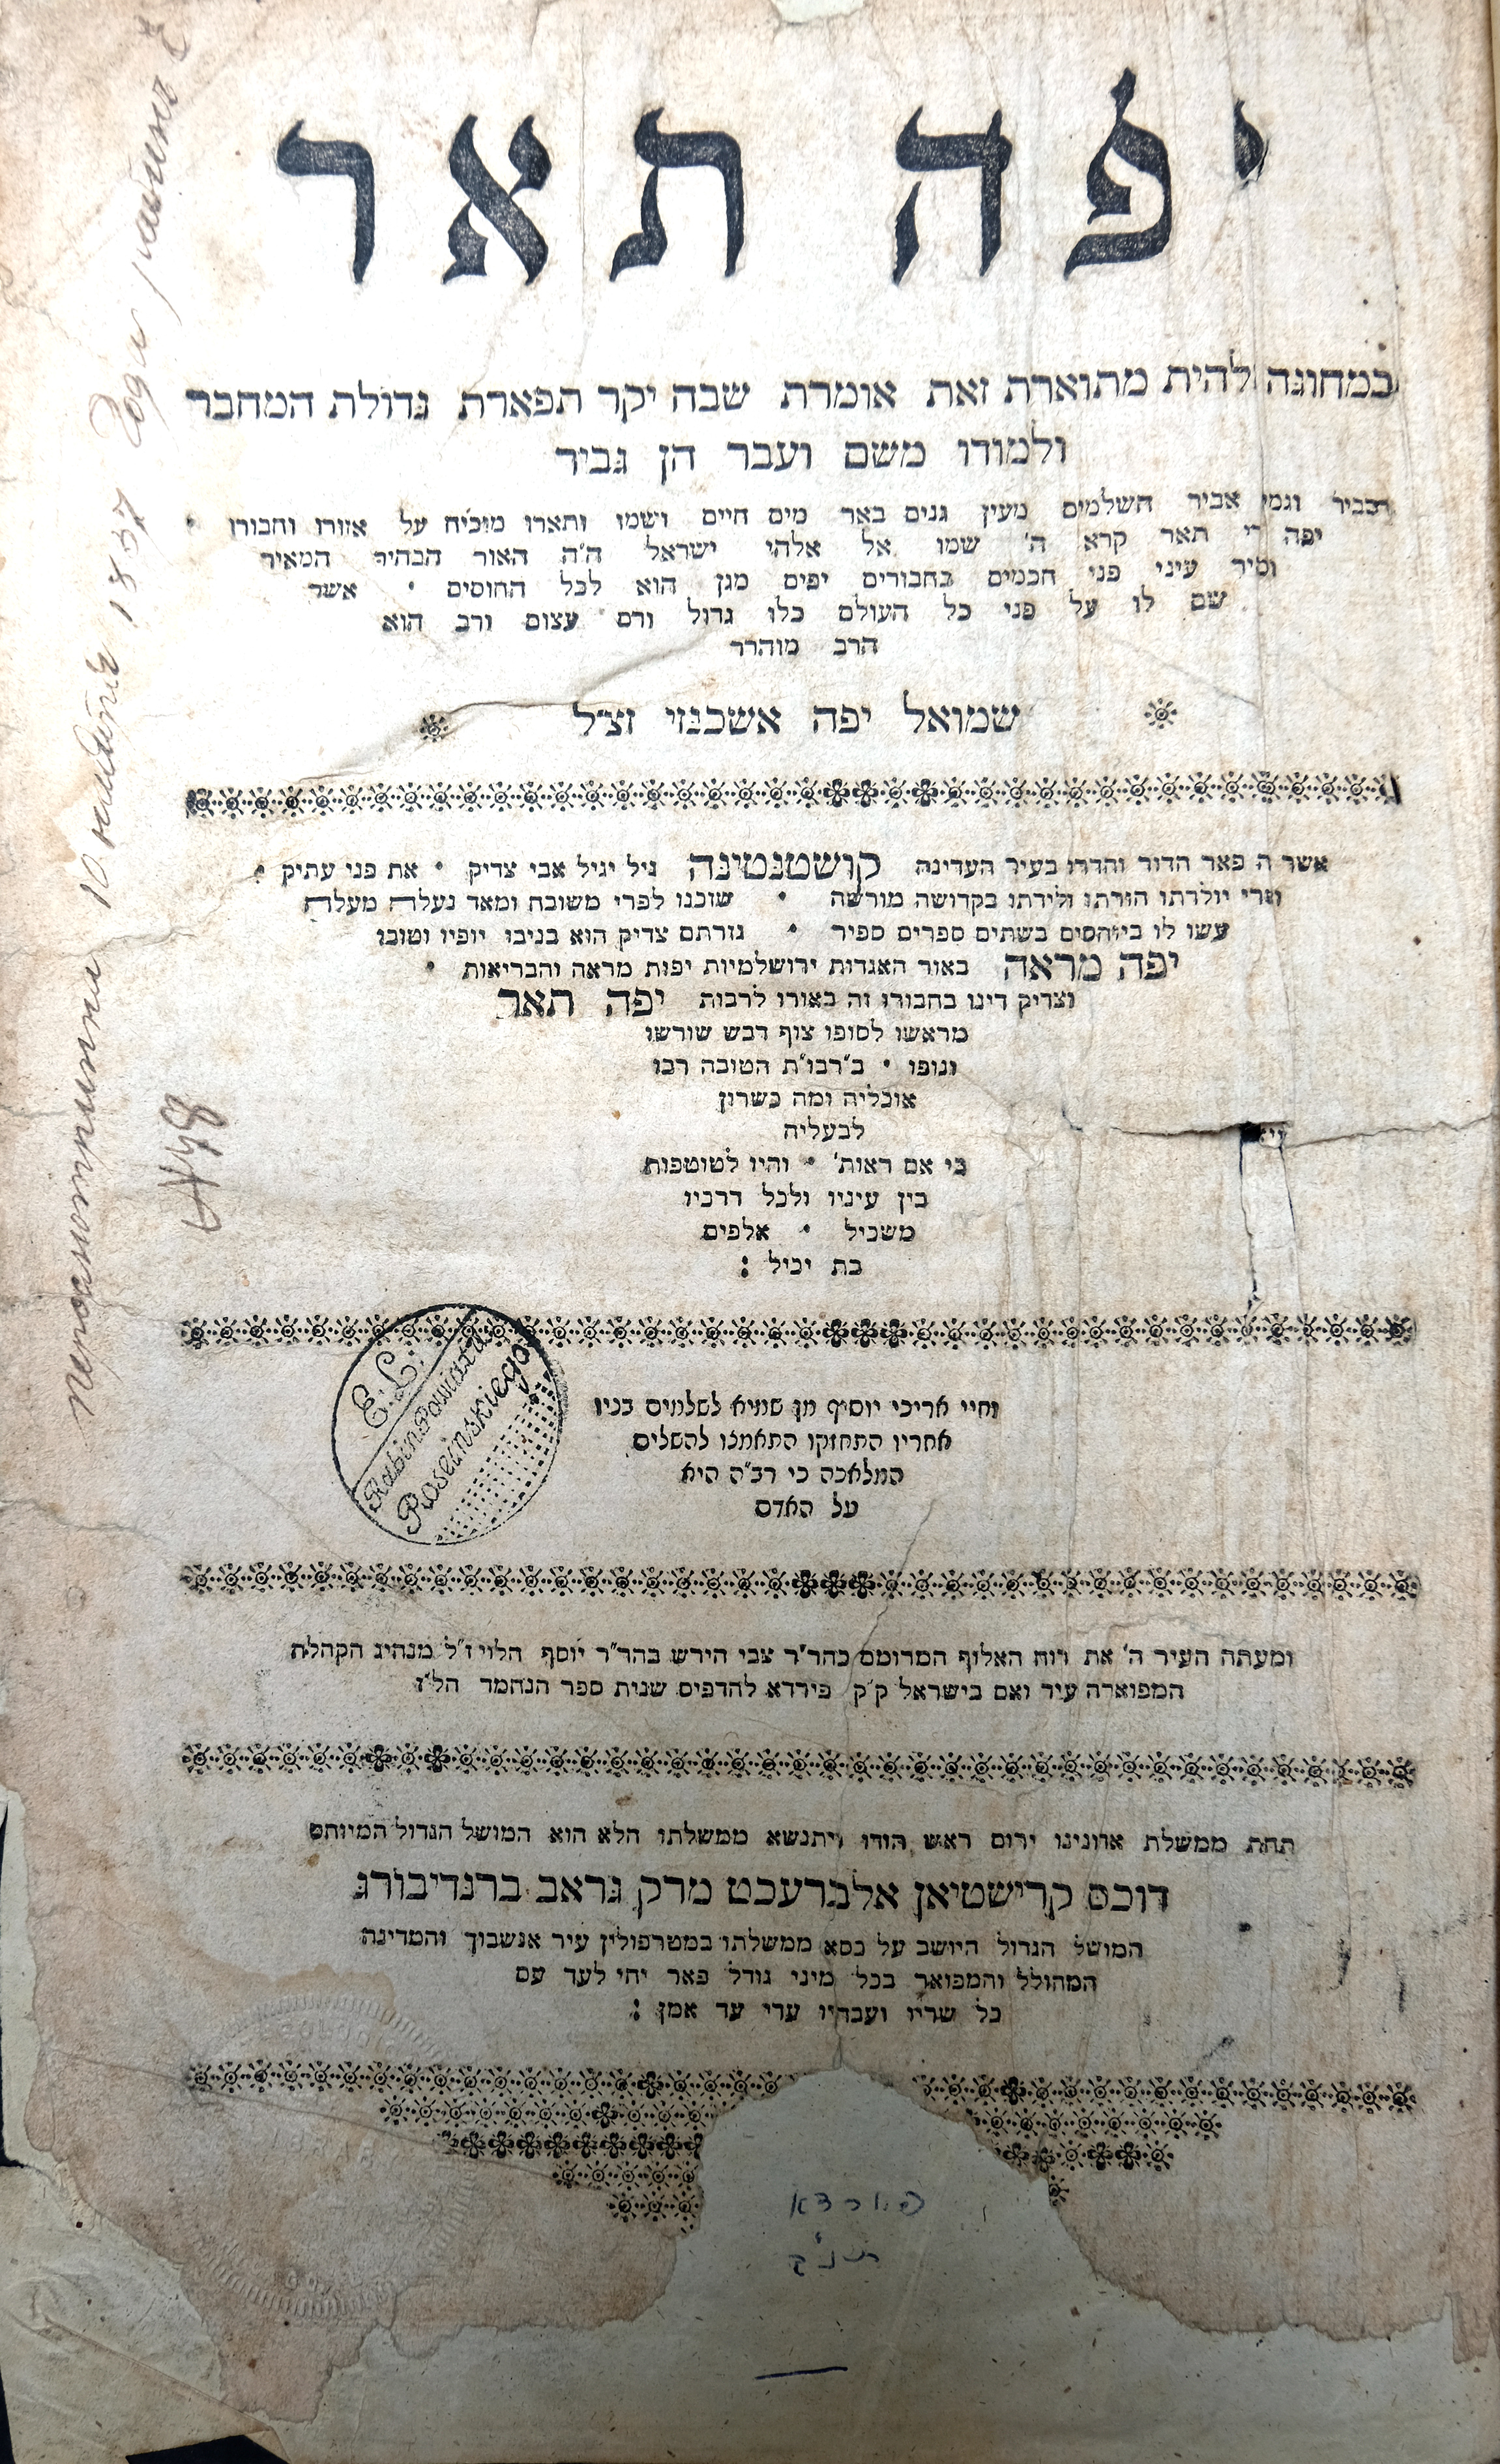 יפה תאר
כמחוגה להית מתוארת זאת אומרת שבח יקר תפארת גדולת המחבר
ולמודו משם ועבר הן גביר
וגמי אביר השלמים מעין גנים באר מים חיים ושמו ותארו מוכיח על אזורו וחבורו •
יפה תאר קרא ה' שמו אל אלהי ישראל ה"ה האור הבהיר המאיר
עיני פני חכמים בחבורים יפים מגן הוא לכל החוסים • אשר
שם לו על פני כל העולם כלו גדול ורם עצום ורב הוא
הרב מוהרר
שמואל יפה אשכנזי זצ"ל
אשר ה פאר הדור והדרו בעיר העדינה קושטנטינה גיל יגיל אבי צדיק • את פני עתיק •
יולדתו הורתו ולידתו בקדושה מורשה • שזכנו לפרי משובח ומאד נעלה מעלה
עשו לו ביוחסים בשתים ספרים ספיר • גזרתם צדיק הוא בניבו יופיו וטובו
יפה מראה באור האגדות ירושלמיות יפות מראה והבריאות •
וצדיק דינו בחבורו זה באורו לרבות יפה תאר
מראשו לסופו צוף דבש שורשו
ונופו • ב"רבו"ת הטובה רבו
אוכליה ומה כשרון
לבעליה
כי אם ראות' • והיו לטוטפות
בין עיניו ולכל דרכיו
משכיל • אלפים
בת יכיל :
וחיי אריכי יוסיף מן שמיא לשלמים בניו
אחריו התחזקו התאמנו להשלים
המלאכה כי רב"ה היא
על האדם
E. L.
Rabin Powiatu
Roseinskiego
ומעתה העיר ה' את רוח האלוף המרומם כהר"ר צבי הירש בהר"ר יוסף הלוי ז"ל מנהיג הקהלת
המפוארה עיר ואם בישראל ק"ק פירדא להדפיס שנית ספר הנחמד הל"ז
תחת ממשלת אדונינו ירום ראש הודו ויתנשא ממשלתו הלא הוא המושל הגדול המיוחס
דוכס קרישטיאן אלברעכט מרק גראב ברנדיבורג
המושל הגדול היושב על כסא ממשלתו במטרפולין עיר אנשבוך והמדינה
המהולל והמפואר בכל מיני גודל פאר יחי לעד עם
כל שריו ועבדיו עדי עד אמן :
פיורדא
1837 года
№ 48